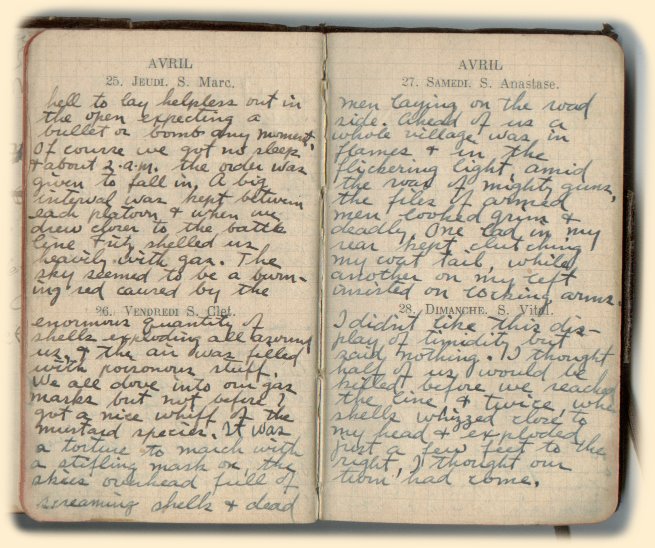 AVRIL
25. JEUDI. S. Marc.
hell to lay helpless out in
the open expecting a
bullet or bomb any moment.
Of course we got no sleep
& about 2 a.m. the order was
given to fall in. A big
interval was kept between
each platoon & when we
drew closer to the battle
line Fritz shelled us
heavily with gas. The
sky seemed to be a burn-
ing red caused by the
26. VENDREDI S. Clet.
enormous quantity of
shells exploding all around
us, & the air was filled
with poisonous stuff.
We all dove into our gas
masks but not before I
got a nice whiff of the
mustard species. It was
a torture to march with
a stifling mask on, the
skies overhead full of
screaming shells & dead
AVRIL
27. SAMEDI. S. Anastase.
men laying on the road
side. Ahead of us a
whole village was in
flames & in the
flickering light, amid
the roar of mighty guns,
the files of armed
men looked grim &
deadly. One lad in my
rear kept clutching
my coat tail, while
another on my left
insisted on locking arms.
28. DIMANCHE. S. Vital.
I didn't like this dis-
play of timidity but
said nothing. I thought
half of us would be
killed before we reached
the line & twice, when
shells whizzed close to
my head & exploded
just a few feet to the
right, I thought our
turn had come.